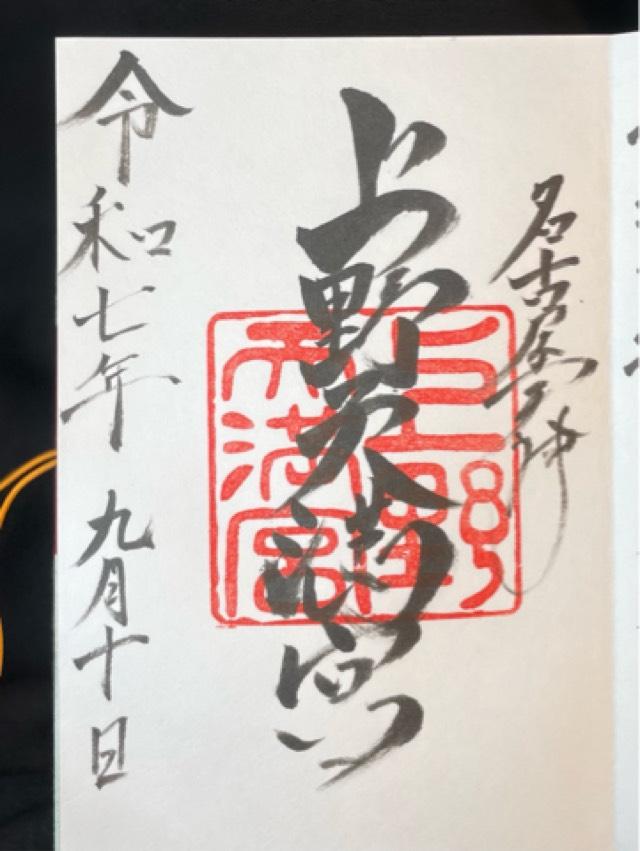 名古屋天神
上野天満宮
上野
天満宮
令和七年 九月十日